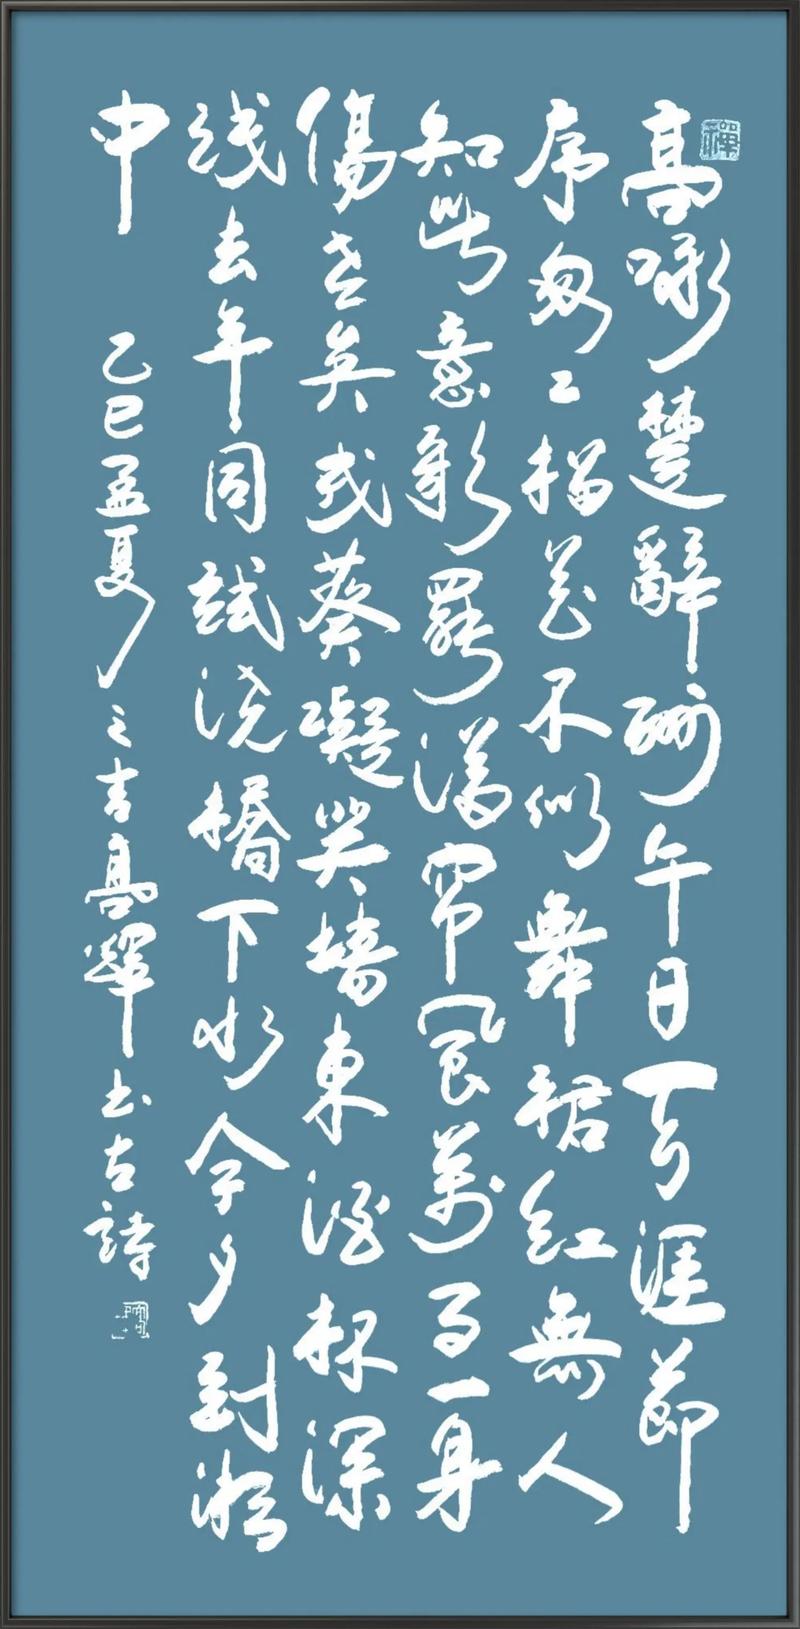 高咏楚辭酬午日天涯節
序匆匆榴花不似舞裙紅無人
知此意歌罷滿帘風萬事一身
傷老矣戎葵凝笑墙東酒杯深
浅去年同試浇橋下水今夕到湘
中
乙巳孟夏之吉高书古詩
禪